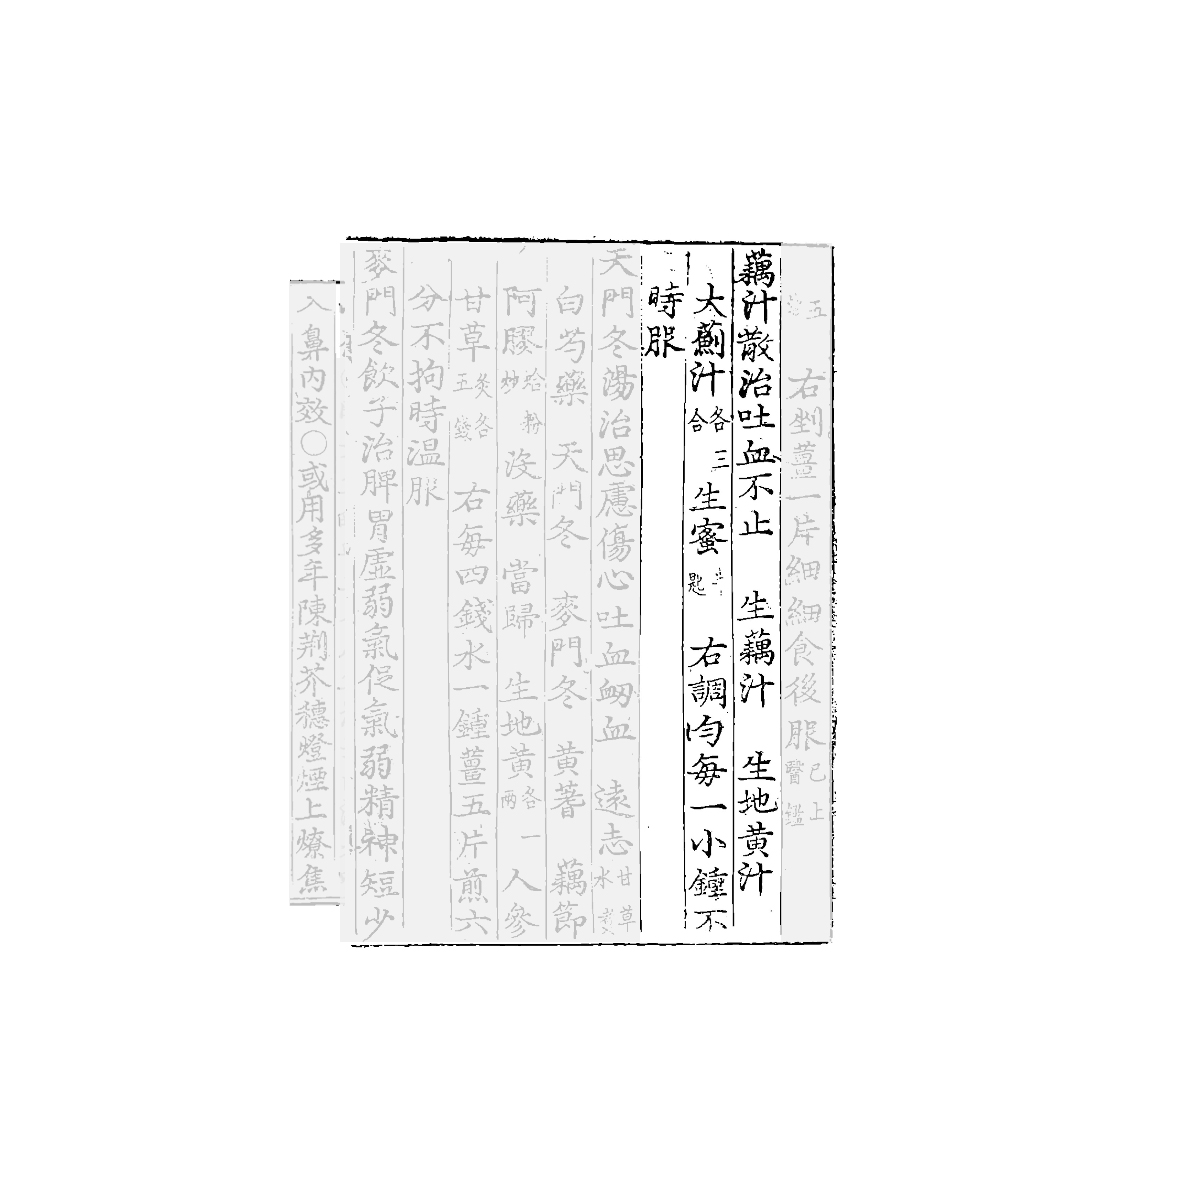 五 右剉薑一片細細食後服已上醫鑑
藕汁散治吐血不止 生藕汁 生地黄汁
大薊汁各三合 生蜜半匙 右調勻每一小鍾不
時服
天門冬湯治思慮傷心吐血衂血 遠志甘草水煮
白芍藥 天門冬 麥門冬 黄蓍 藕節
阿膠蛤粉炒 没藥 當歸 生地黄各一兩 人參
甘草炙各五錢 右每四錢水一鍾薑五片煎六
分不拘時温服
麥門冬飲子治脾胃虛弱氣促氣弱精神短少
入鼻内效〇或用多年陳荆芥穗燈煙上燎焦